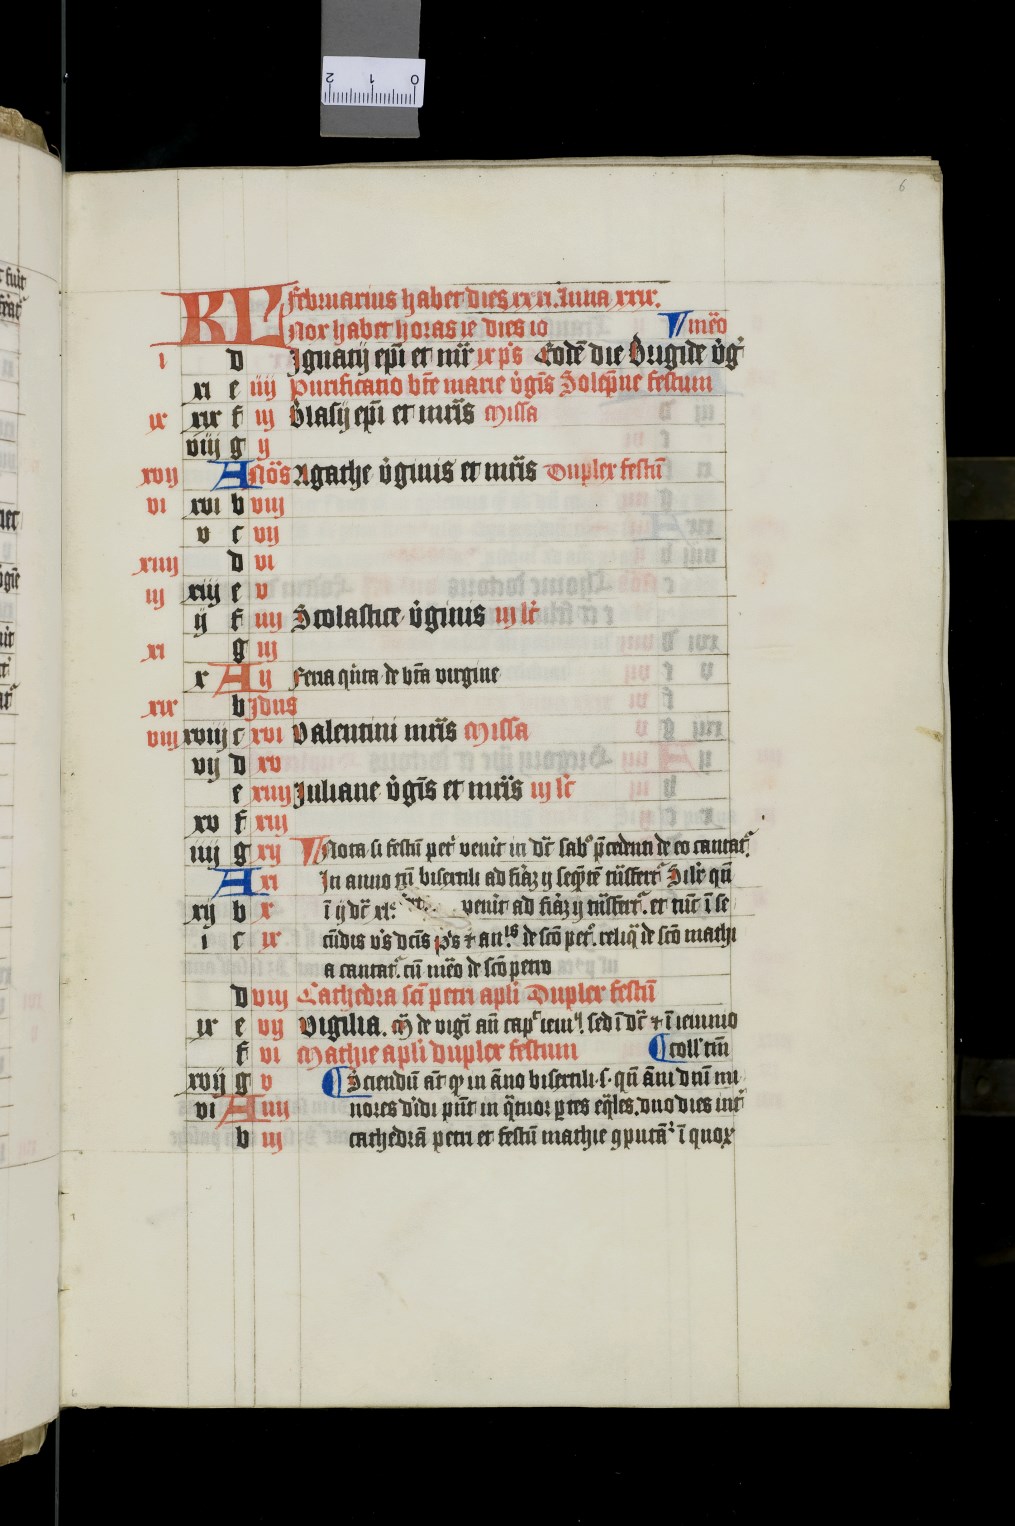 2 1 0
6
KL februarius habet dies xxvi. luna xxix.
Nox habet horas ie dies io meo
i d Ignatij epi et mr ix ps Eode die Brigide vg
xi e iiij Purificatio bte marie vgis Solepne festum
ix xix f iij Blasij epi et mris Missa
viij g ij
xvij A Nos Agathe vginis et mris Duplex festu
vi xvi b viij
v c vij
xiiij d vi
iij xiij e v
ij f iiij Scolastice vginis iij lc
xi g iij
x A ij Feria qinta de bta virgine
xix b Idus
viij xviij c xvi Valentini mris Missa
vij d xv
e xiiij Juliane vgis et mris iij lc
xv f xiij
iiij g xij Nota si festu pet venit in dc sabo pcedenti de eo cantat
A xi In anno tn bisextili ad fia ij seqte tnsfert Silr qn
xij b x i ij dc xle venit ad fia ij tnsfert et tuc i se
i c ix cudis vs dcis ps et an de sco pet reliq de sco mathi
a cantat cu meo de sco petro
d viij Cathedra sci petri apli Duplex festu
ix e vij Vigilia. de vigi an cap ieiu. sed i dc et i ieiunio
f vi Mathie apli duplex festum coll tm
xvij g v Sciendu at q in ano bisextili .s. qn ani dni mi
vi A iiij nores didi pnt in qtuor ptes eqles. duo dies int
b iij cathedra petri et festu mathie 9puta i quox